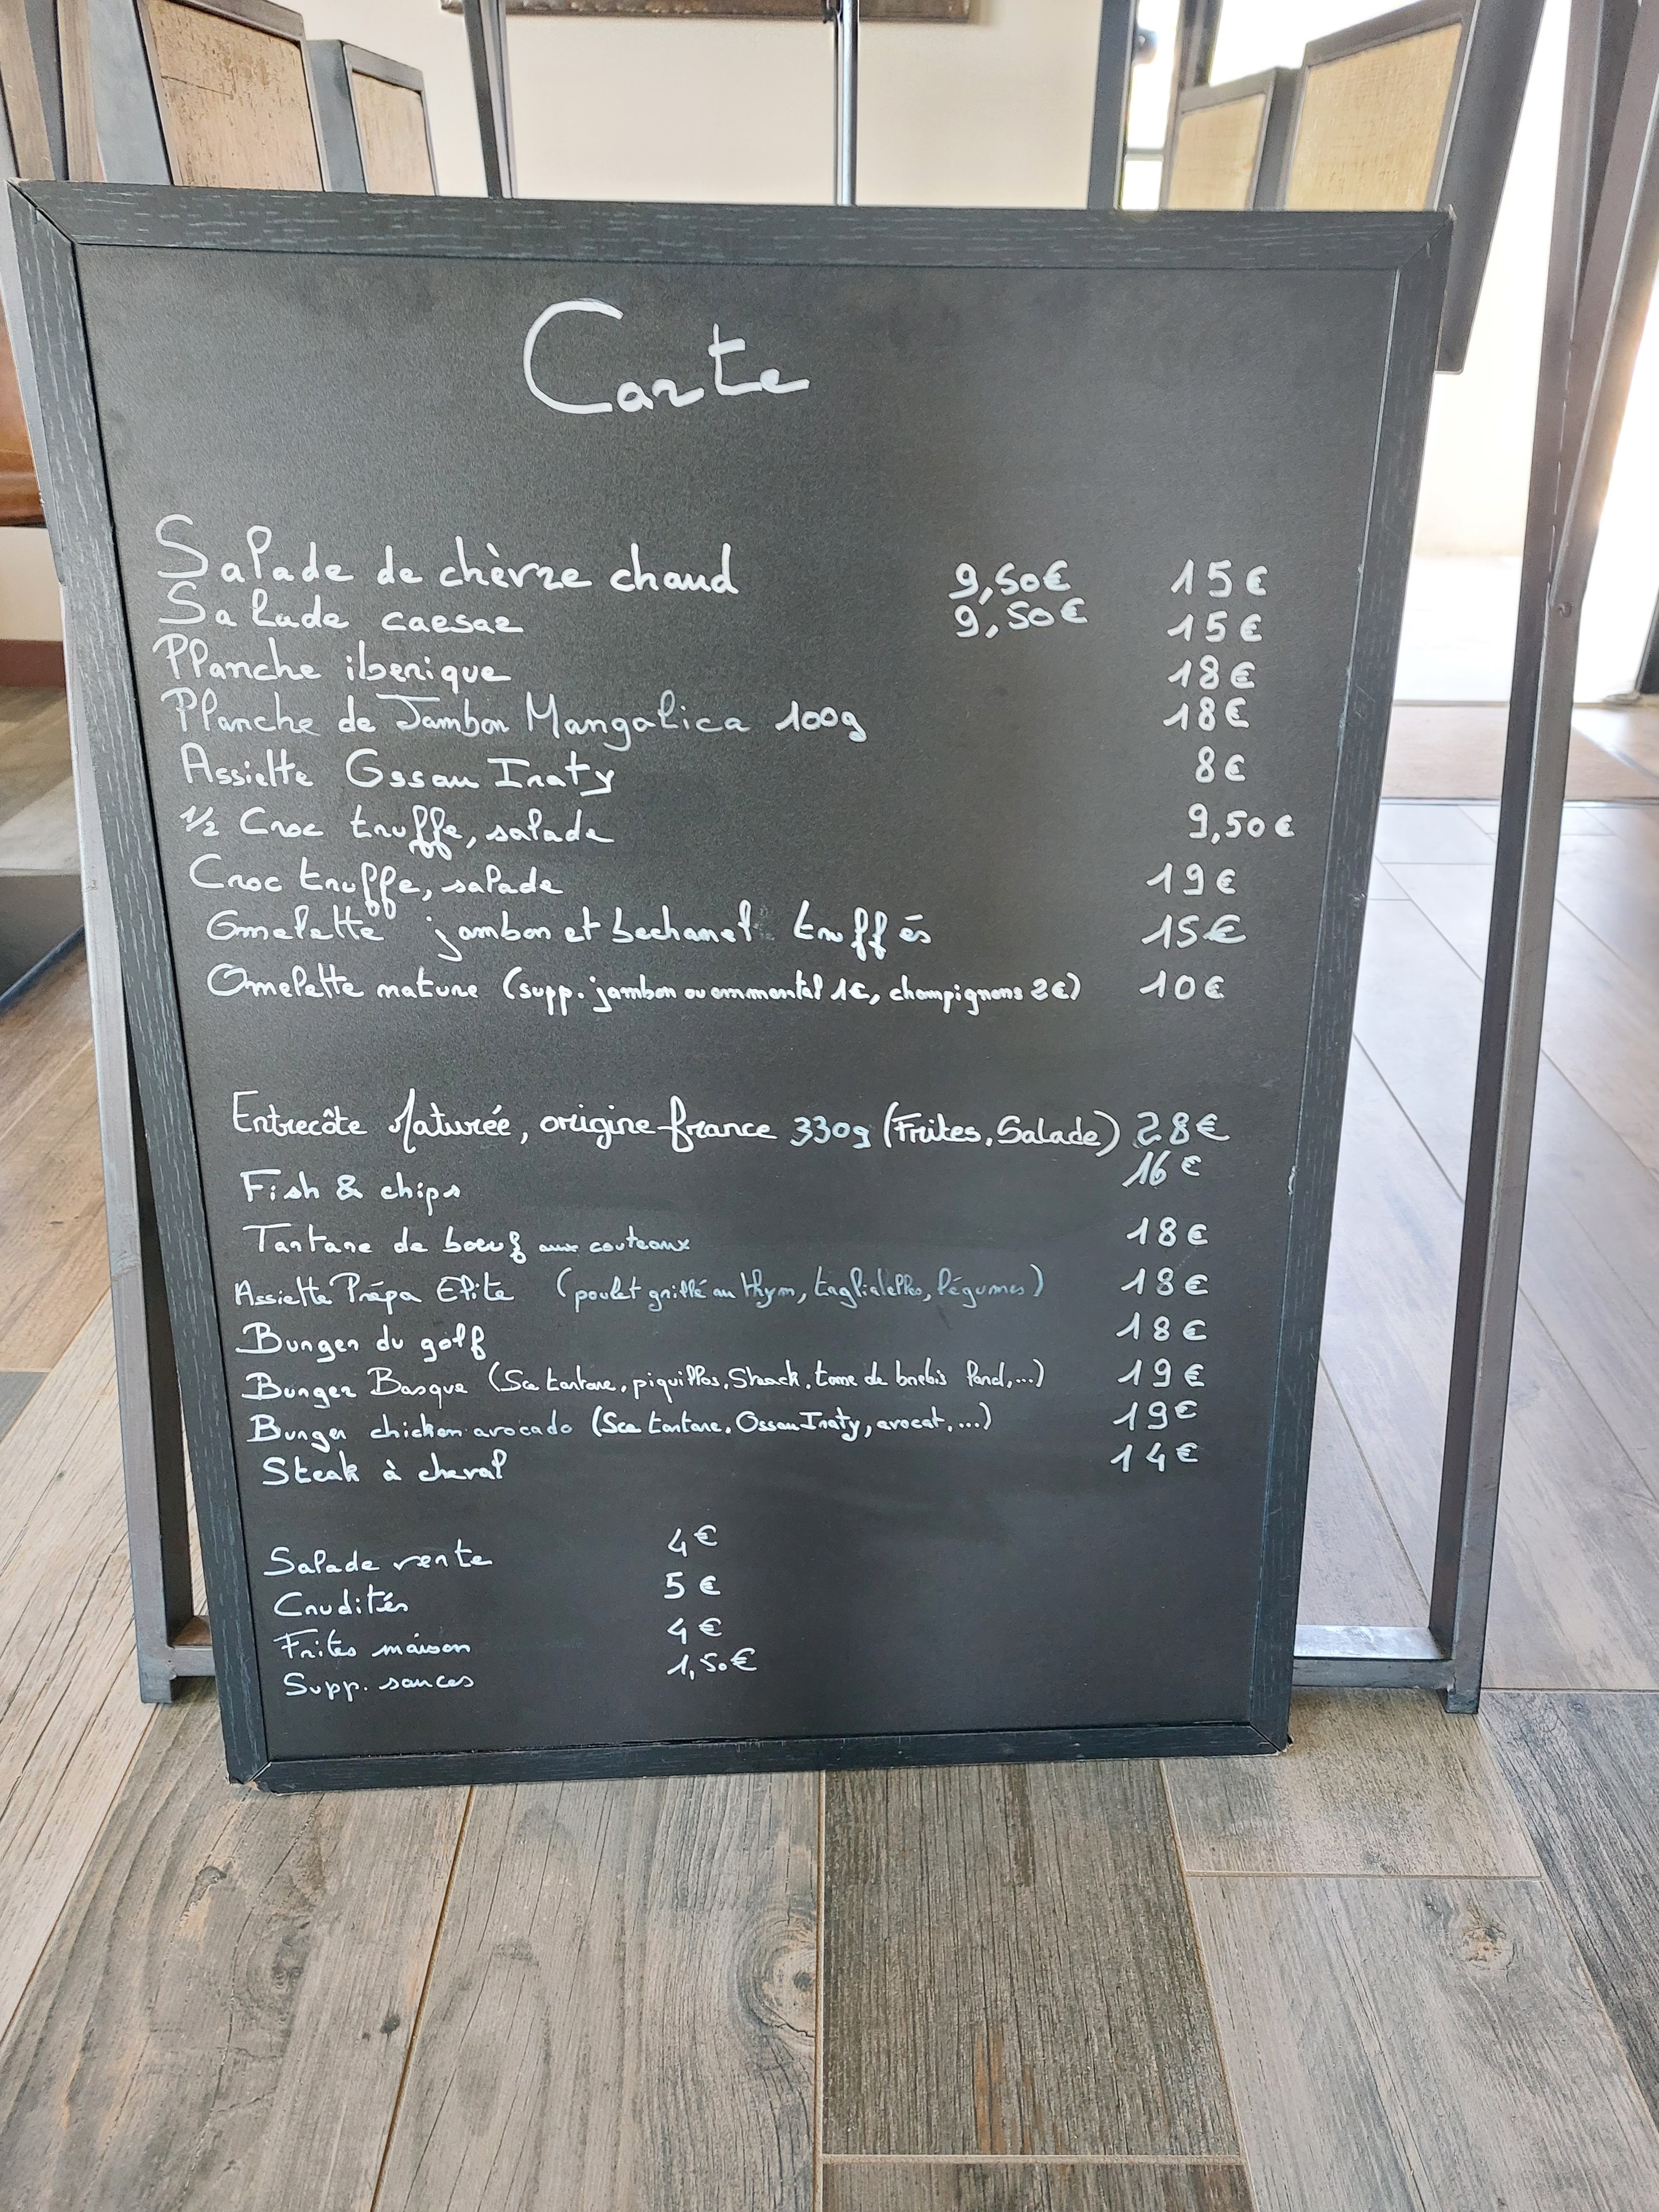 Carte
Salade de chèvre chaud 9,50€ 15€
Salade caesar 9,50€ 15€
Planche iberique 18€
Planche de Jambon Mangalica 100g 18€
Assiette Ossau Iraty 8€
1/2 Croc truffe, salade 9,50€
Croc truffe, salade 19€
Omelette jambon et bechamel truffés 15€
Omelette nature (supp. jambon ou emmental 1€, champignons 2€) 10€
Entrecôte Maturée, origine france 330g (Frites, Salade) 28€
Fish & chips 16€
Tartare de boeuf aux couteaux 18€
Assiette Prépa Elite (poulet grillé au thym, tagliatelles, légumes) 18€
Burger du golf 18€
Burger Basque (Sce tartare, piquillos, Steack, tome de brebis, lard,...) 19€
Burger chicken avocado (Sce tartare, Ossau Iraty, avocat,...) 19€
Steak à cheval 14€
Salade verte 4€
Crudités 5€
Frites maison 4€
Supp. sauces 1,50€